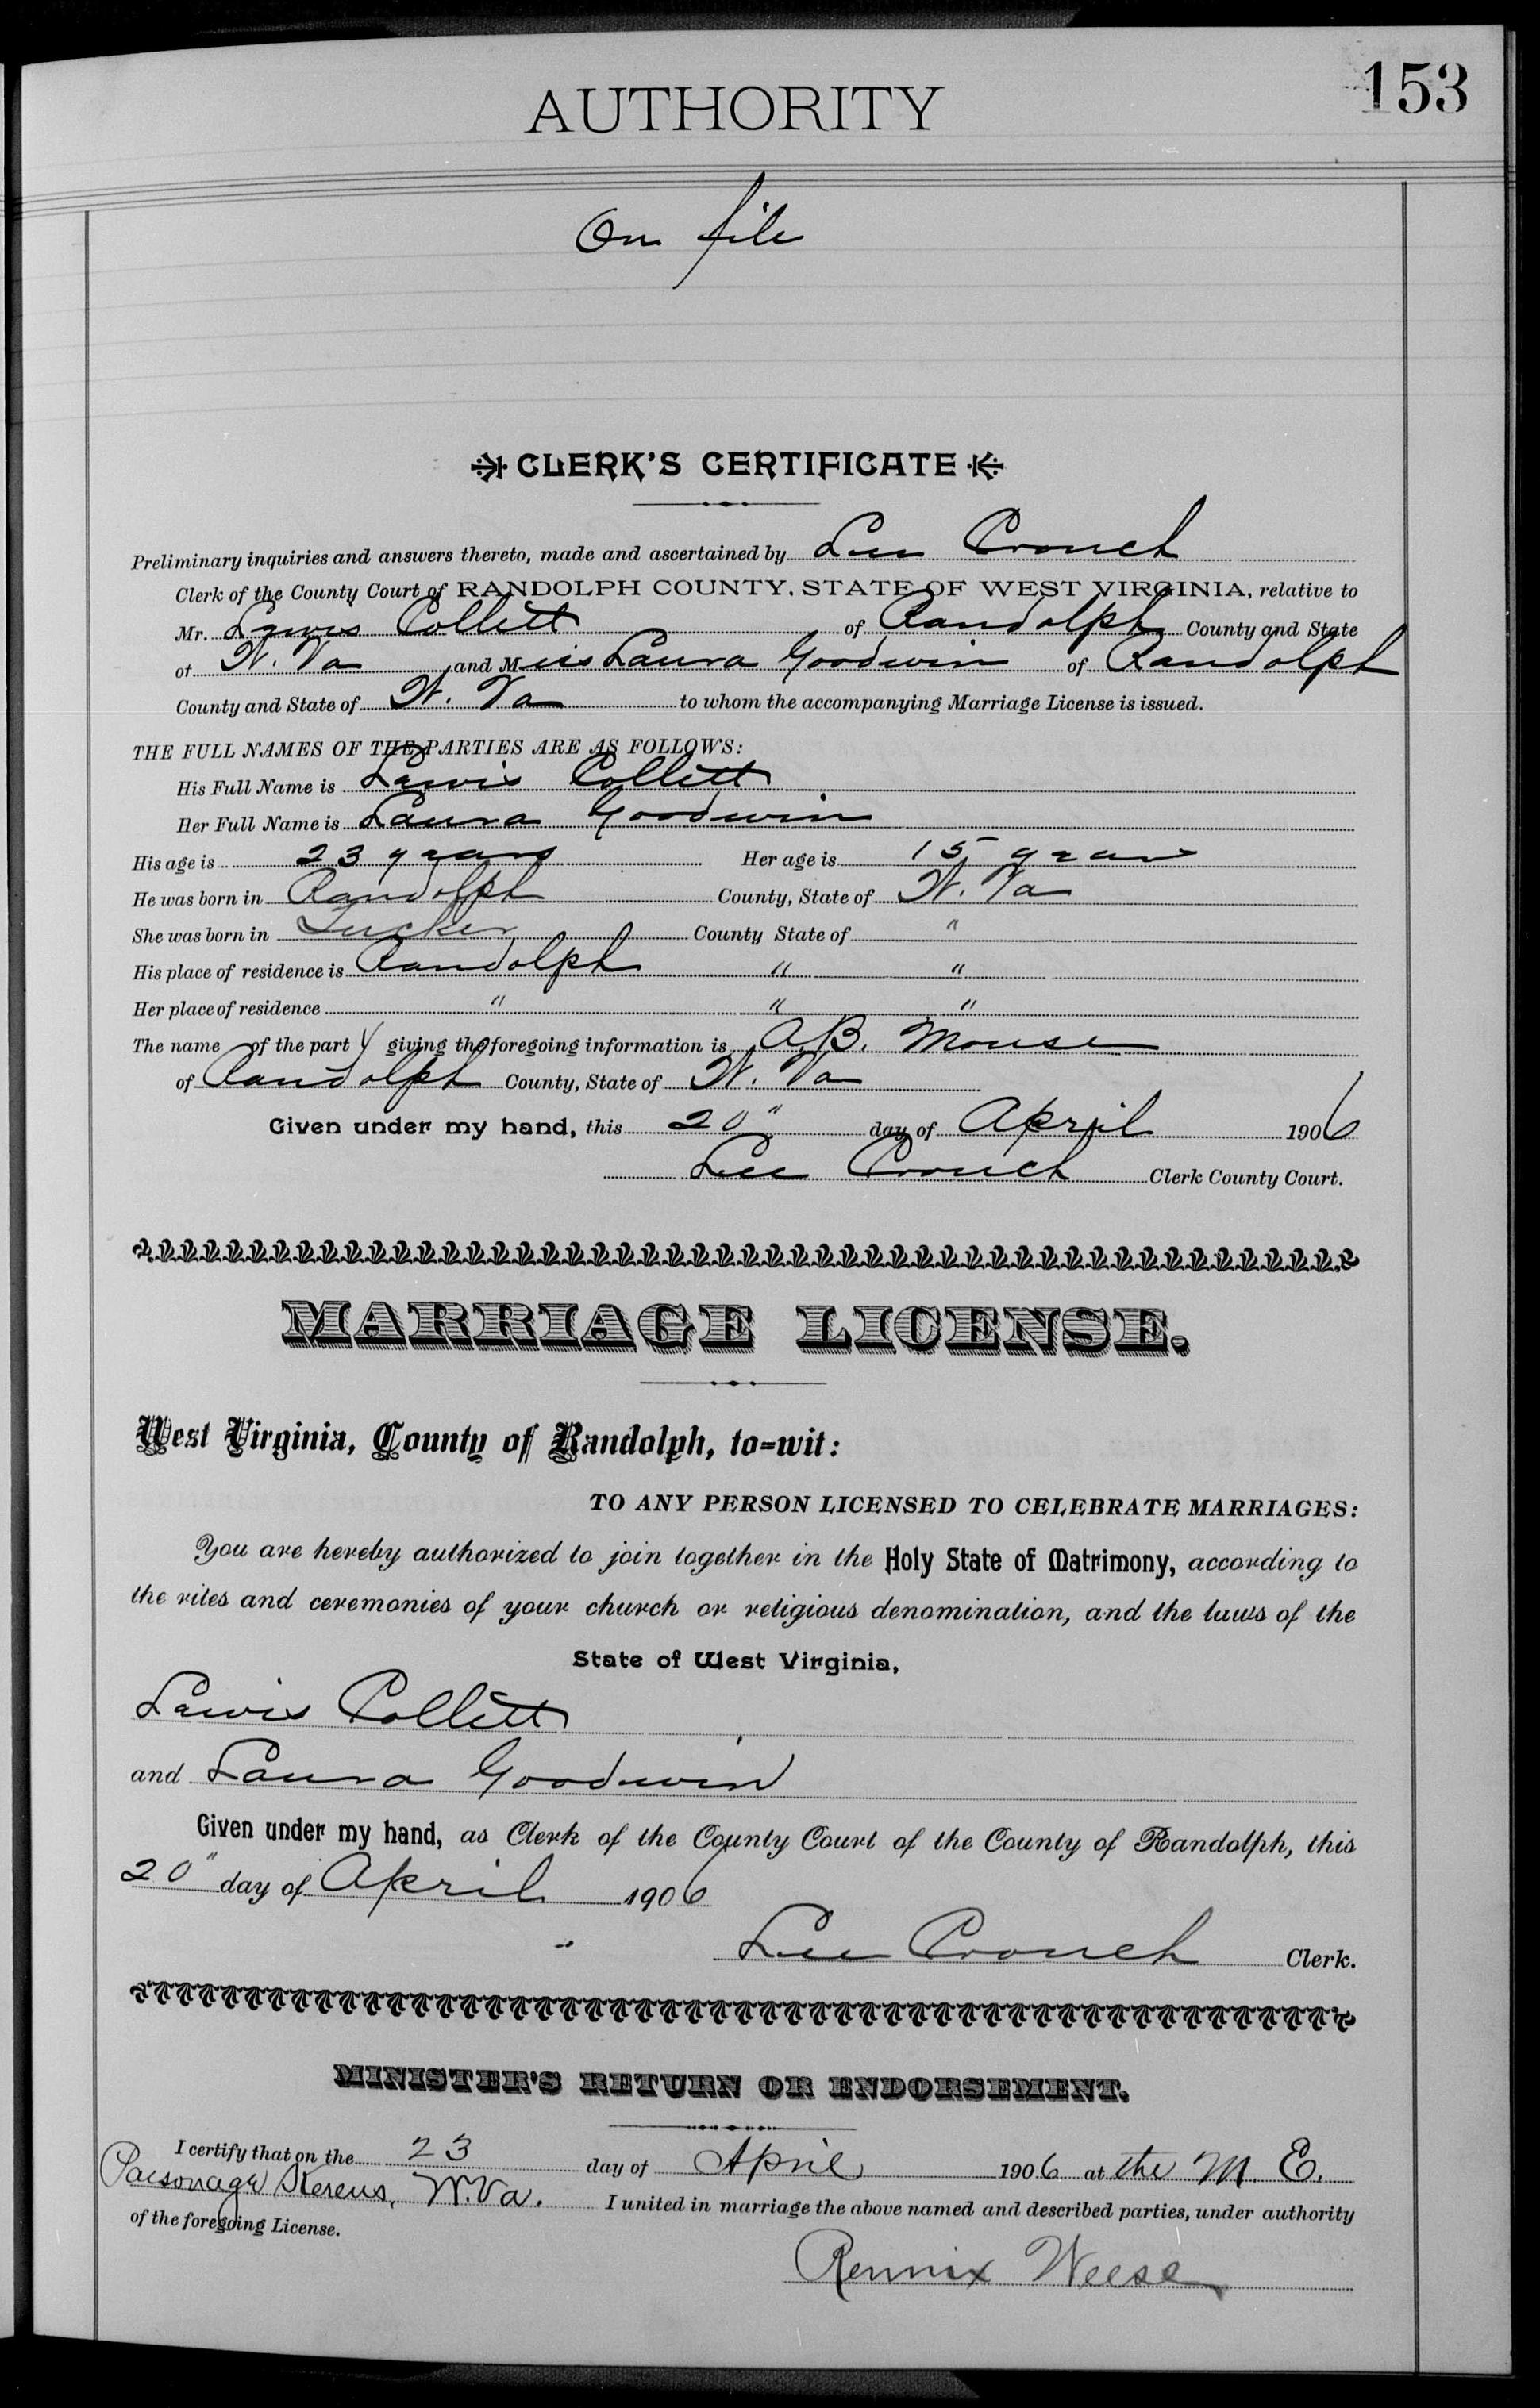 153
AUTHORITY
On file
CLERK'S CERTIFICATE
Preliminary inquiries and answers thereto, made and ascertained by Lee Crouch
Clerk of the County Court of RANDOLPH COUNTY, STATE OF WEST VIRGINIA, relative to
Mr. Lewis Collett of Randolph County and State
of W. Va and Miss Laura Goodwin of Randolph
County and State of W. Va to whom the accompanying Marriage License is issued.
THE FULL NAMES OF THE PARTIES ARE AS FOLLOWS:
His Full Name is Lewis Collett
Her Full Name is Laura Goodwin
His age is 23 years Her age is 15 years
He was born in Randolph County, State of W. Va
She was born in Tucker County State of "
His place of residence is Randolph " "
Her place of residence " " "
The name of the party giving the foregoing information is A.B. Mouse
of Randolph County, State of W. Va
Given under my hand, this 20" day of April 1906
Lee Crouch Clerk County Court.
MARRIAGE LICENSE.
West Virginia, County of Randolph, to=wit:
TO ANY PERSON LICENSED TO CELEBRATE MARRIAGES:
You are hereby authorized to join together in the Holy State of Matrimony, according to
the rites and ceremonies of your church or religious denomination, and the laws of the
State of West Virginia,
Lewis Collett
and Laura Goodwin
Given under my hand, as Clerk of the County Court of the County of Randolph, this
20" day of April 1906
Lee Crouch Clerk.
MINISTER'S RETURN OR ENDORSEMENT.
I certify that on the 23 day of April 1906 at the M. E.
Parsonage Kerens, W.Va. I united in marriage the above named and described parties, under authority
of the foregoing License.
Rennix Weese